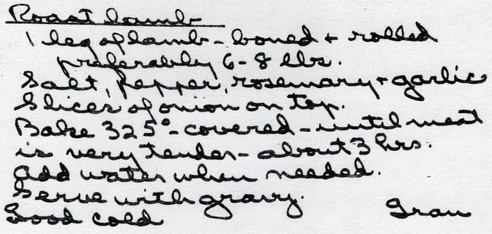 Roast lamb
1 leg of lamb - boned + rolled
preferably 6-8 lbs.
Salt, pepper, rosemary + garlic
Slices of onion on top.
Bake 325° - covered - until meat
is very tender - about 3 hrs.
Add water when needed.
Serve with gravy.
Good cold Gran